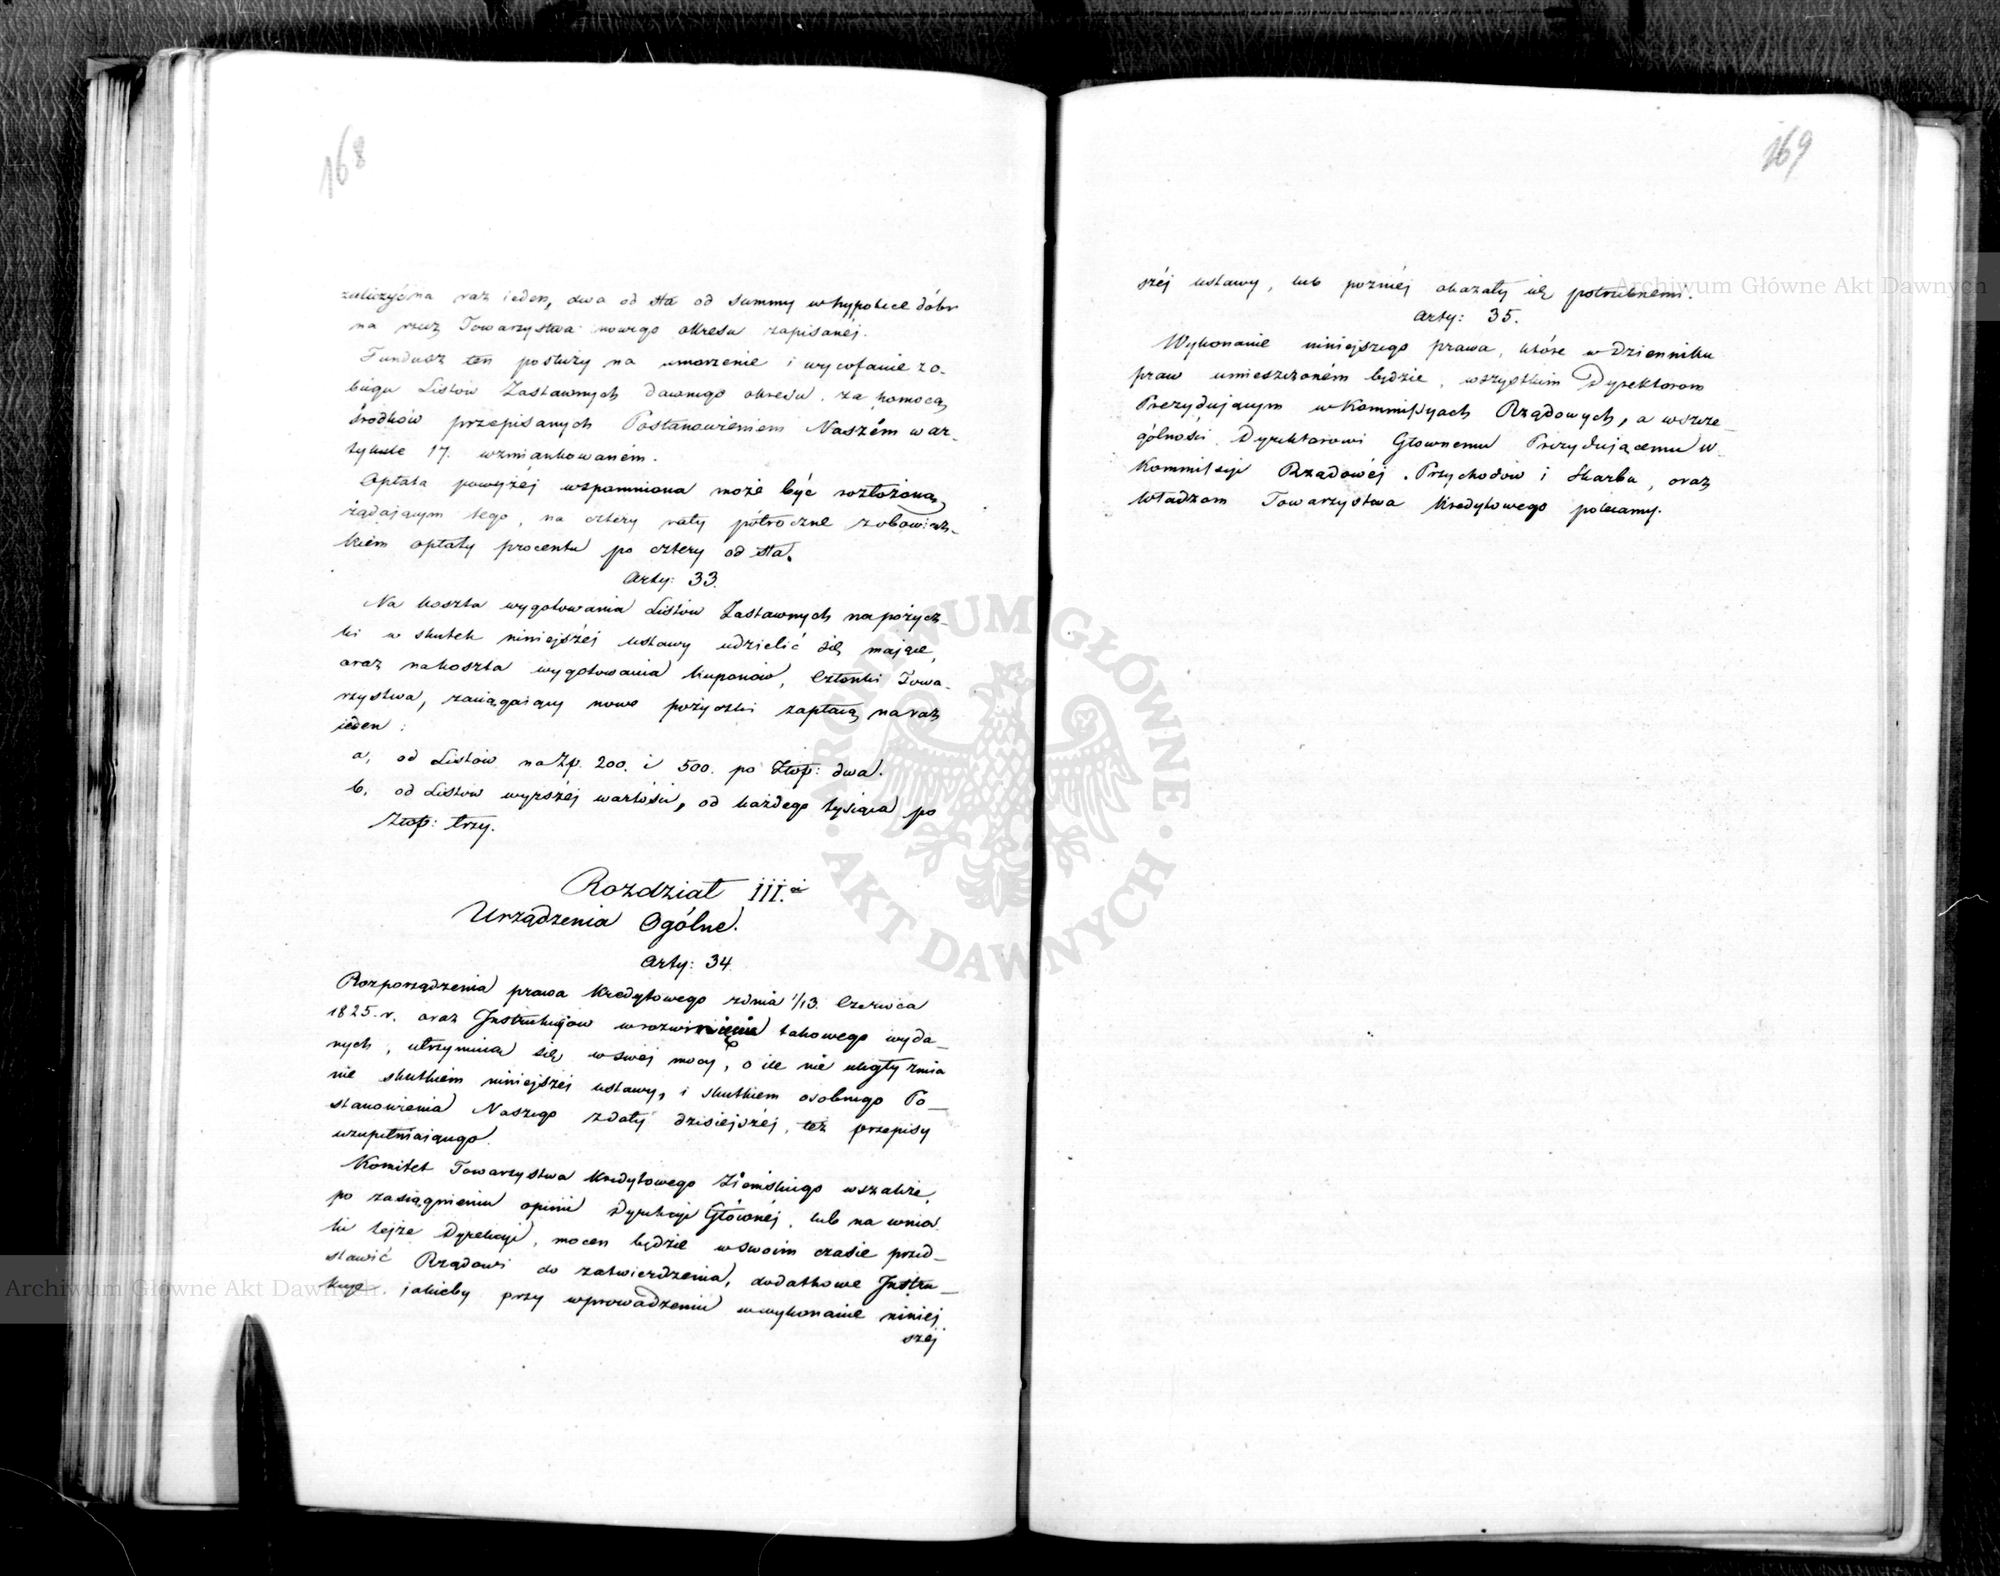 168
zaliczyć na raz ieden, dwa od sta od summy w hypotece dóbr
na rzecz Towarzystwa nowego okresu zapisanéj.
Fundusz ten posłuży na umorzenie i wycofanie z o-
biegu Listów Zastawnych dawnego okresu, za pomocą
środków przepisanych Postanowieniem Naszém w ar-
tykule 17. wzmiankowaném.
Opłata powyżéj wspomniona może być rozłożoną,
żądającym tego, na cztery raty półroczne z obowiąz-
kiem opłaty procentu po cztery od sta.
Arty: 33.
Na koszta wygotowania Listów Zastawnych na pożycz-
ki w skutek niniejszéj ustawy udzielić się mające,
oraz na koszta wygotowania kuponów, Członki Towa-
rzystwa, zaciągaiący nowe pożyczki zapłacą na raz
ieden:
a, od Listów na Zp. 200. i 500. po Złop: dwa.
b. od Listów wyższéj wartości, od każdego tysiąca po
Złop: trzy.
Rozdział III.ci
Urządzenia Ogólne.
Arty: 34.
Rozporządzenia prawa Kredytowego z dnia 1/13. Czerwca
1825. r. oraz Instrukcjów w rozwinięcie takowego wyda-
nych, utrzymują się w swéj mocy, o ile nie uległy zmia
nie skutkiem niniejszéj ustawy, i skutkiem osobnego Po-
stanowienia Naszego z daty dzisiejszéj, też przepisy
uzupełniaiącego.
Komitet Towarzystwa Kredytowego Ziemskiego wszakże,
po zasiągnieniu opinii Dyrekcyi Głównéj, lub na wnio
ski tejże Dyrekcyi, mocen będzie w swoim czasie przed-
stawić Rządowi do zatwierdzenia, dodatkowe Instru-
kcye jakieby przy wprowadzeniu w wykonanie niniej
széj
169
széj ustawy, lub poźniéj okazały się potrzebnemi.
Arty: 35.
Wykonanie niniejszego prawa, które w Dzienniku
praw umieszczoném będzie, wszystkim Dyrektorom
Prezydującym w Kommissyach Rządowych, a w szcze-
gólności Dyrektorowi Głownemu Prezydującemu w
Kommissyi Rządowéj Przychodów i Skarbu, oraz
Władzom Towarzystwa Kredytowego polecamy.
Archiwum Główne Akt Dawnych
ARCHIWUM GŁÓWNE
AKT DAWNYCH
Archiwum Główne Akt Dawnych